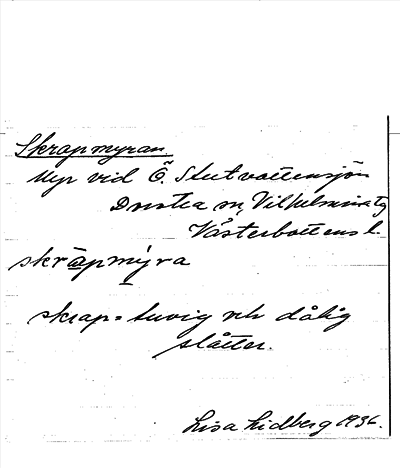 Skrapmyran.
Myr vid Ö. Stutvattensjön
Dorotea sn, Vilhelmina tg
Västerbottens l.
skrapmýra
skrap = tuvig och dålig
slåtter.
Lisa Lidberg 1936.